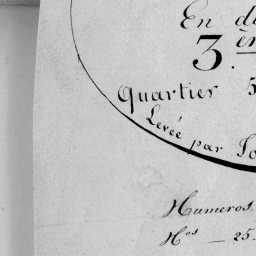 En
3. è
Quartier 5
Levée par
Numeros.
Nos — 25.